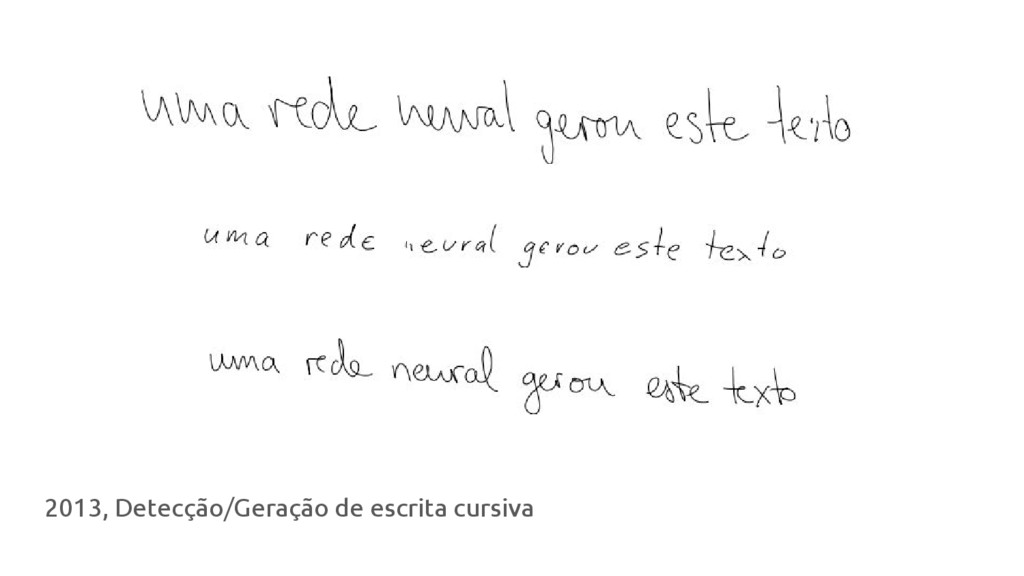 uma rede neural gerou este texto
uma rede neural gerou este texto
uma rede neural gerou este texto
2013, Detecção/Geração de escrita cursiva